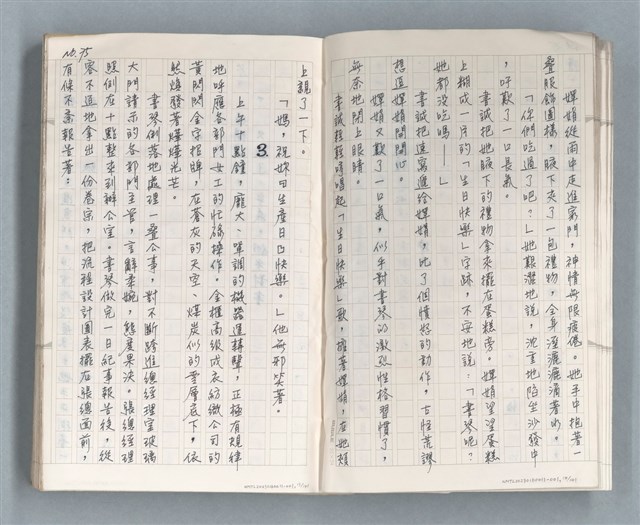 嬋娟從雨中走進家門，神情無限疲倦。她手中抱著一
疊服飾圖樣，腋下夾了一包禮物，全身溼漉漉滴著水。
「你們吃過了吧？」她艱澀地說，沈重地陷坐沙發中
，吁歎了一口長氣。
書誠把她腋下的禮物拿來擺在蛋糕旁。嬋娟望望蛋糕
上糊成一片的「生日快樂」字跡，不安地說：「書琴呢？
她都沒吃嗎——」
書誠把遙寫遞給嬋娟，比了個憤怒的動作，古怪荒謬
想逗嬋娟開開心。
嬋娟又歎了一口氣，似乎對書琴的激烈性格習慣了，
無奈地閉上眼睛。
書誠輕輕哼唱起「生日快樂」歌，擁著嬋娟，在她頰
上親了一下。
「媽，祝妳日生產日日快樂。」他無邪笑著。
3
上午十點鐘，龐大、單調的機器運轉聲，正極有規律
地呼應各部門女工的忙碌操作。金權高級成衣紡織公司的
黃閃閃金字招牌，在蒼灰的天空、煤炭似的雲層底下，依
然煥發著燦燦光芒。
書琴俐落地處理一疊公事，對不斷踏進總經理室玻璃
大門請示的各部門主管，言辭柔婉，態度果決。張總經理
照例在十點整來到辦公室。書琴做完一日紀事報告後，從
容不迫地拿出一份卷宗，把流程設計圖表擺在張總面前，
有條不紊報告著：
No. 75